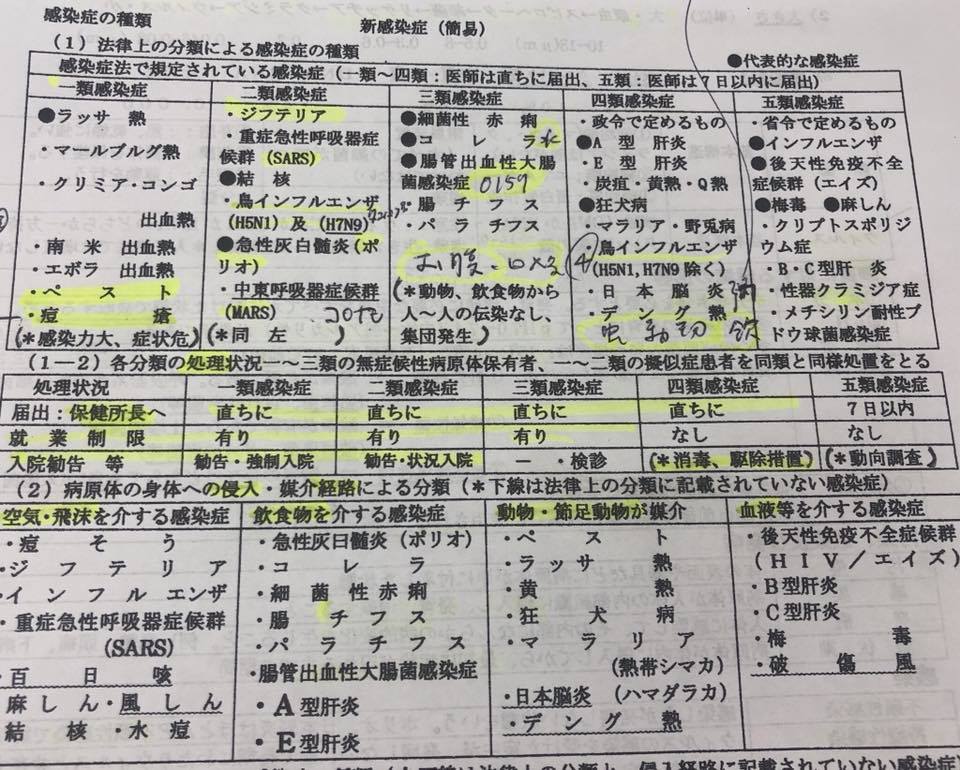 感染症の種類
新感染症（簡易）
（１）法律上の分類による感染症の種類
●代表的な感染症
感染症法で規定されている感染症（一類～四類：医師は直ちに届出、五類：医師は７日以内に届出）
一類感染症
●ラッサ 熱
・マールブルグ熱
・クリミア・コンゴ
出血熱
・南米 出血熱
・エボラ 出血熱
・ペスト
・痘瘡
（＊感染力大、症状危）
二類感染症
・ジフテリア
・重症急性呼吸器症
候群(SARS)
●結核
・鳥インフルエンザ
(H5N1)及(H7N9)
●急性灰白髄炎（ポ
リオ）
・中東呼吸器症候群
(MARS) コロナ
（＊同 左）
三類感染症
●細菌性 赤痢
●コレラ
●腸管出血性大腸
菌感染症 0157
・腸チフス
・パラチフス
お腹
（＊動物、飲食物から
人～人の伝染なし、
集団発生）
四類感染症
・政令で定めるもの
●A 型 肝炎
・E 型 肝炎
・炭疽・黄熱・Q熱
●狂犬病
・マラリア・野兎病
④
鳥インフルエンザ
(H5N1,H7N9 除く)
・日本脳炎
・デング熱
五類感染症
・省令で定めるもの
●インフルエンザ
●後天性免疫不全
症候群（エイズ）
●梅毒 ●麻しん
・クリプトスポリジ
ウム症
・B・C型肝 炎
・性器クラミジア症
・メチシリン耐性ブ
ドウ球菌感染症
（１－２）各分類の処理状況－一～三類の無症候性病原体保有者、一～二類の擬似症患者を同類と同様処置をとる
処理状況 一類感染症 二類感染症 三類感染症 四類感染症 五類感染症
届出：保健所長へ 直ちに 直ちに 直ちに 直ちに ７日以内
就業制限 有り 有り 有り なし なし
入院勧告 等 勧告・強制入院 勧告・状況入院 －・検診 （＊消毒、駆除措置） （＊動向調査）
（２）病原体の身体への侵入・媒介経路による分類（＊下線は法律上の分類に記載されていない感染症）
空気・飛沫を介する感染症
・痘そう
・ジフテリア
・インフルエンザ
・重症急性呼吸器症候群
(SARS)
・百日咳
麻しん・風しん
結核・水痘
飲食物を介する感染症
・急性灰日髄炎（ポリオ）
・コレラ
・細菌性赤痢
・腸チフス
・パラチフス
・腸管出血性大腸菌感染症
・A型肝炎
・E型肝炎
動物・節足動物が媒介
・ペスト
・ラッサ熱
・黄熱
・狂犬病
・マラリア
（熱帯シマカ）
・日本脳炎（ハマダラカ）
・デング熱
血液等を介する感染症
・後天性免疫不全症候群
（HIV／エイズ）
・B型肝炎
・C型肝炎
・梅毒
・破傷風